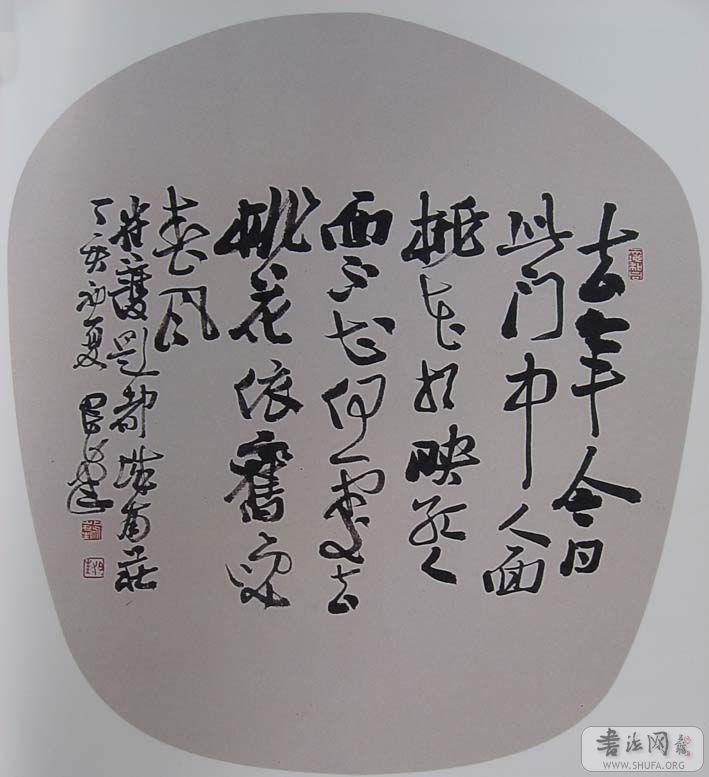 去年今日
此门中人面
桃花相映红人
面不知何處去
桃花依舊笑
春风
崔護題都城南莊
丁亥初夏
書法网
WWW.SHUFA.ORG